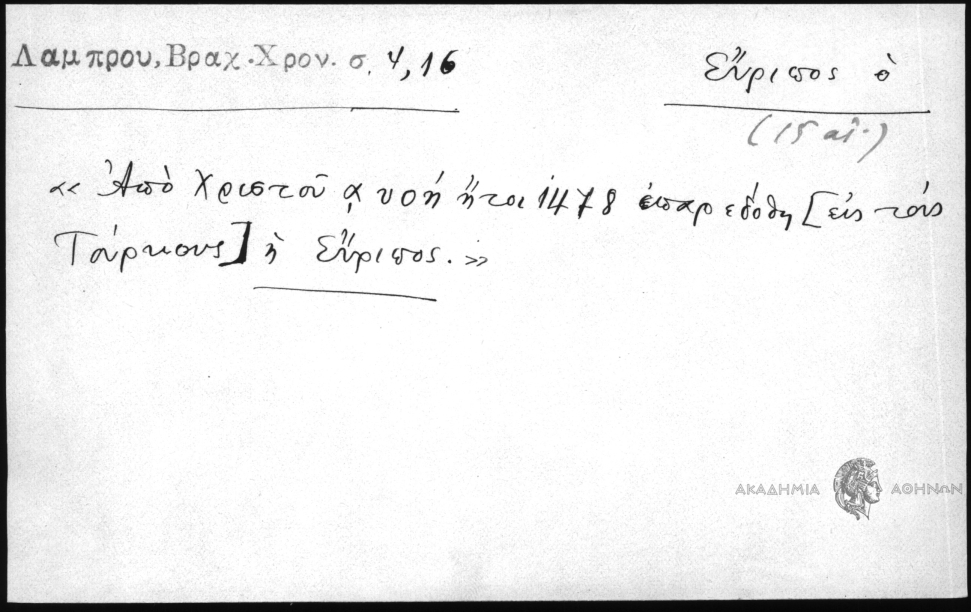 Λαμπρου, Βραχ. Χρον. σ. 4, 16
Εὔριπος ὁ
(15 αἰ.)
«Ἀπὸ Χριστοῦ ͵α υοή ἤτοι 1478 ἐπαρεδόθη [εἰς τοὺς
Τούρκους] ἡ Εὔριπος.»
ΑΚΑΔΗΜΙΑ ΑΘΗΝΩΝ